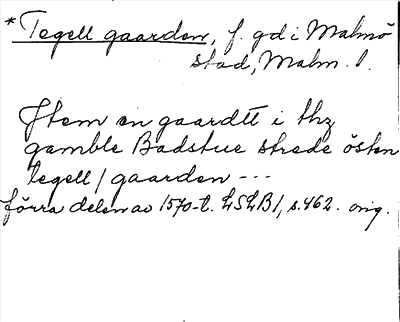 * Tegell gaarden, f. gd i Malmö
stad, Malm. l.
Jtem en gaardtt i thz
gamble Badstue strede östen
tegell/gaarden ---
förra delen av 1570-t. LSLB1, s. 462. orig.